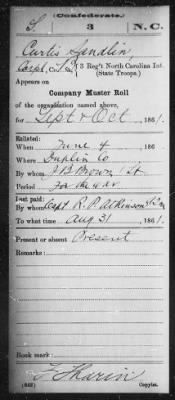 (Confederate.)
S. 3 N.C.
Curtis Sandlin,
Corpl, Co. 3 Reg't North Carolina Inf.
(State Troops.)
Appears on
Company Muster Roll
of the organization named above,
for Sept & Oct, 1861.
Enlisted:
When June 4, 186
Where Duplin Co
By whom Brown Lt
Period For the war
Last paid:
By whom Capt R. P. Atkinson
To what time Aug 31, 1861.
Present or absent Present
Remarks:
Book mark:
(642) Copyist.